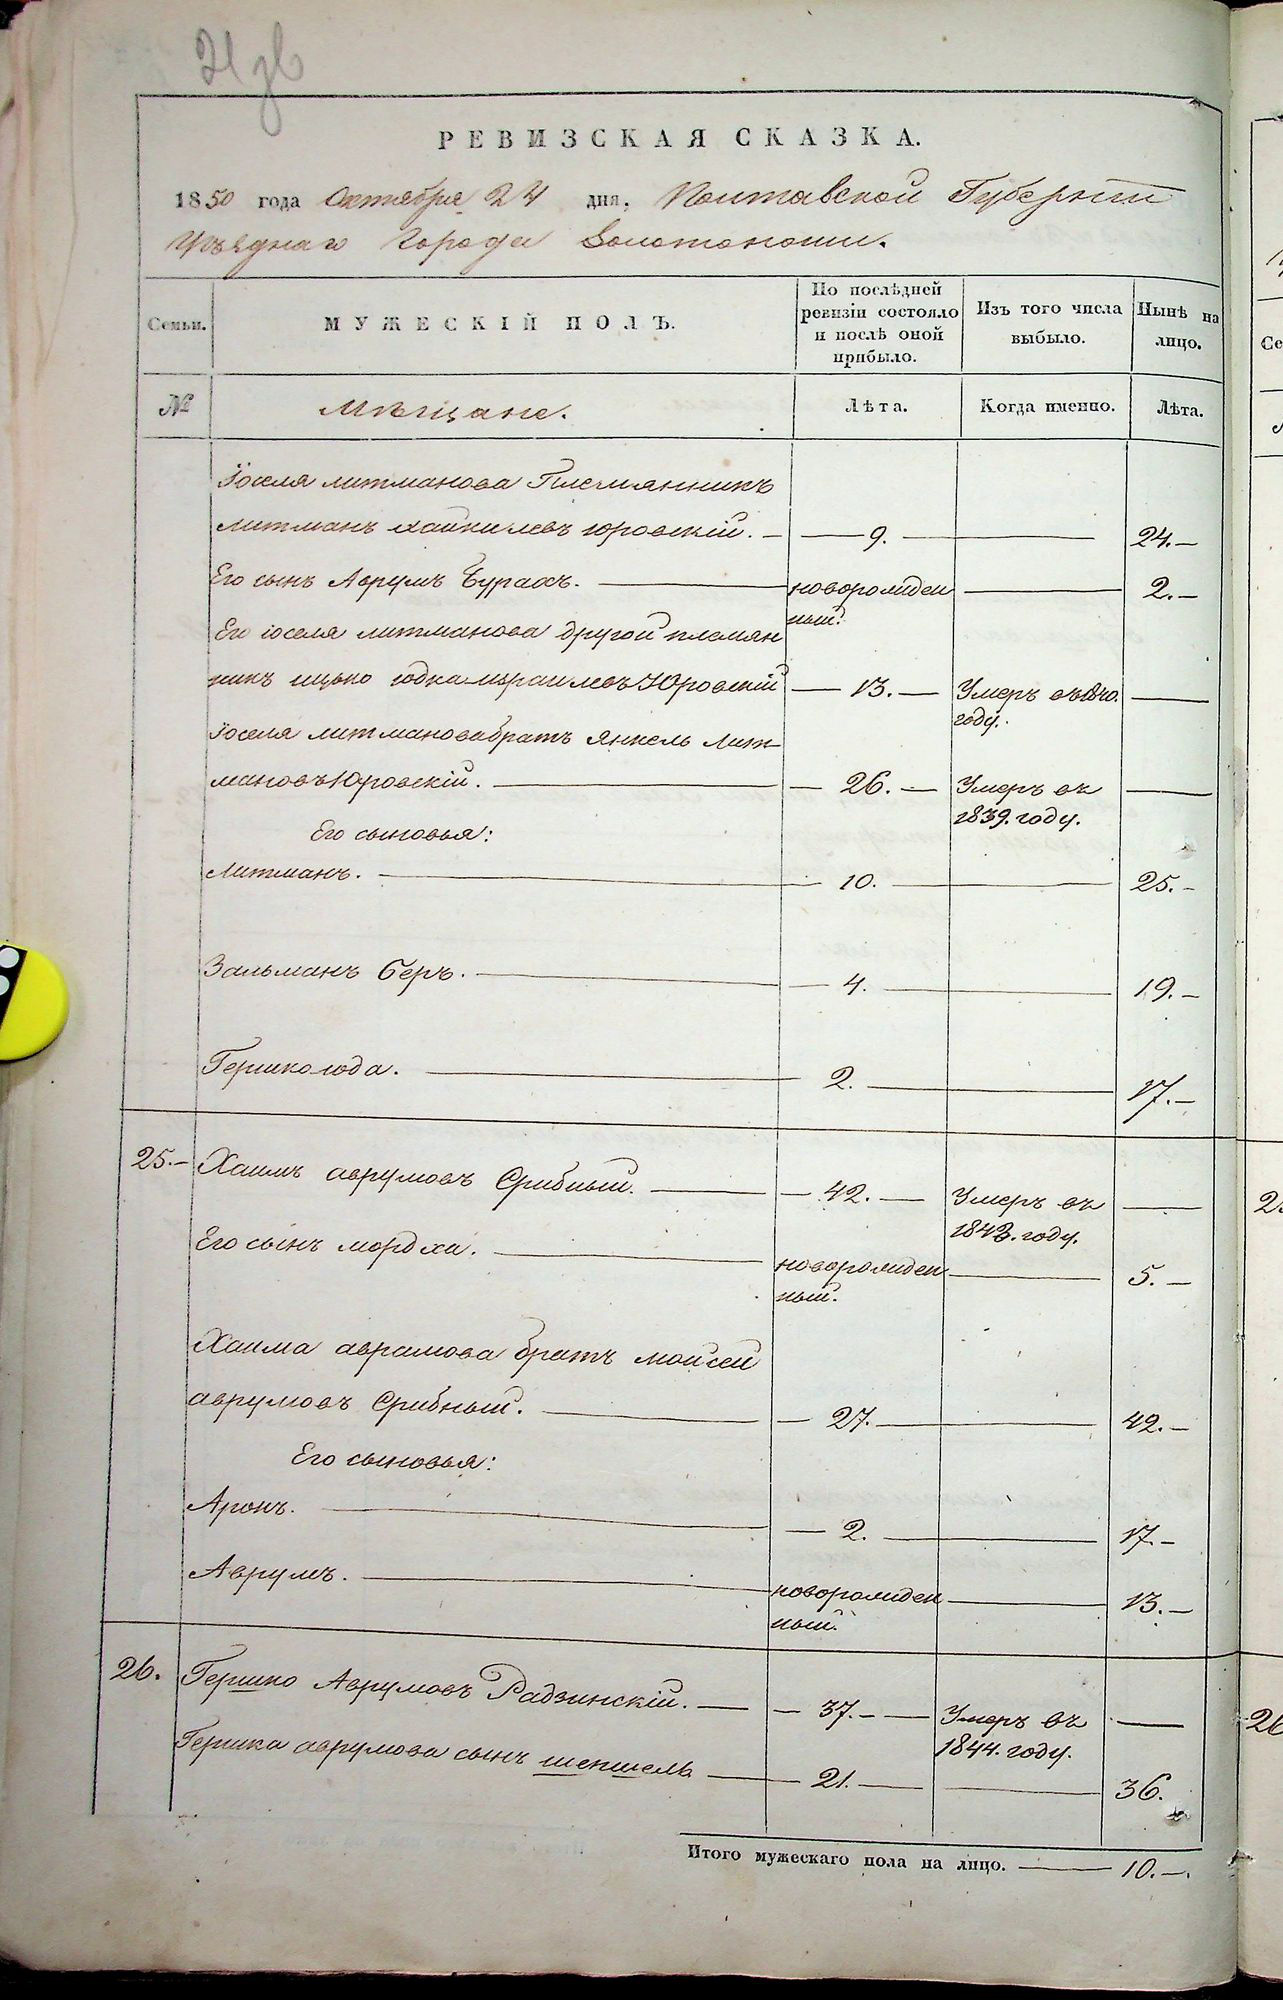 21 зв
РЕВИЗСКАЯ СКАЗКА.
1850 года Октября 24 дня, Полтавской Губернiи
Уѣзднаго Города Золотоноши.
Семьи.
МУЖЕСКІЙ ПОЛЪ.
По послѣдней ревизіи состояло и послѣ оной прибыло.
Изъ того числа выбыло.
Нынѣ на лицо.
№
Мѣщане.
Лѣта.
Когда именно.
Лѣта.
Іоселя литманова Племянникъ
литманъ хаикилевъ юровскій. — 9. — 24. —
Его сынъ Аврумъ Бурахъ. — новорожден
ный. — 2. —
Его іоселя литманова другой племян
никъ ицько юдка израилевъ Юровскій — 13. — Умеръ въ 1840.
году. —
Іоселя литманова братъ янкель лит-
мановъ Юровскій. — 26. — Умеръ въ
1839. году. —
Его сыновья:
Литманъ. — 10. — 25. —
Зальманъ беръ. — 4. — 19. —
Гершко юда. — 2. — 17. —
25. — Хаимъ аврумовъ Срибный. — 42. — Умеръ въ
1843. году. —
Его сынъ мордха. — новорожден
ный. — 5. —
Хаима аврамова братъ моисей
аврумовъ Срибный. — 27. — 42. —
Его сыновья:
Аронъ. — 2. — 17. —
Аврумъ. — новорожден
ный. — 13. —
26. Гершко Аврумовъ Радзинскій. — 37. — Умеръ въ
1844. году. —
Гершка аврумова сынъ шепшель — 21. — 36.
Итого мужескаго пола на лицо. — 10. —.